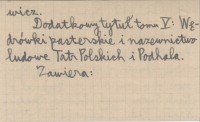 wicz.
Dodatkowy tytuł tomu V: Wę-
drówki pasterskie i nazewnictwo
ludowe Tatr Polskich i Podhala.
Zawiera: